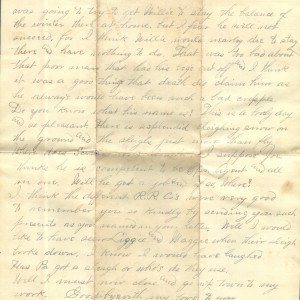 was going to try & get Willie to stay the balance of
the winter then at home, but I fear he will not
succeed, for I think Willie would nearly die to stay
there & have nothing to do. That was too bad about
that poor man that has his legs off & I think
it was a good thing that death did claim him as
he always would have been such a bad cripple
Do you know what his name is? This is a lovely day
& so pleasant there is splendid sleighing snow on
the ground & the sleighs just more than fly
support you
thinks he is competent to be agent and all
in one. Will he get a job
I think the different R.R. Co's were very good
to remember you so kindly by sending you such
presents as you named in your letter. Well I would
like to have seen Lizzie & Maggie when their sleigh
broke down. I know I would have laughed
Has Pa got a sleigh or who's do they use
Well I must now close and go at town to my
work. Goodbye with my love to you